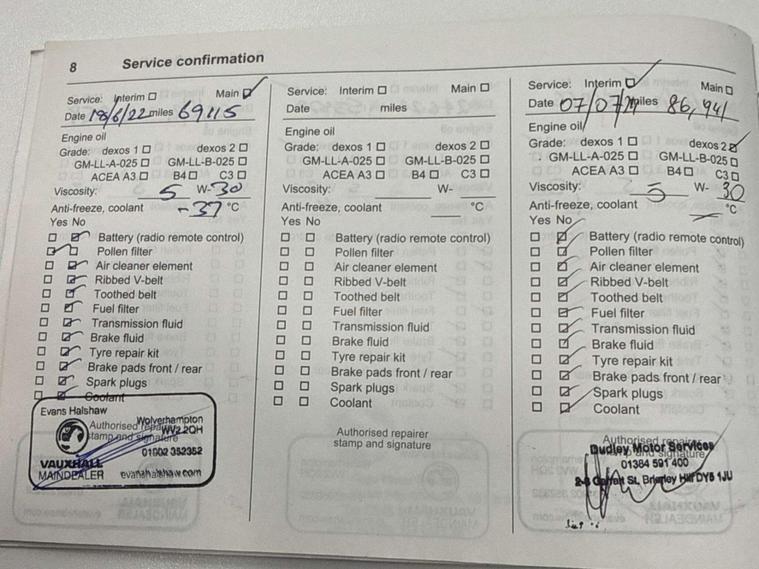 8
Service confirmation
Service: Interim ☐ Main ☑
Date 18/6/22 miles 69115
Engine oil
Grade: dexos 1 ☐ dexos 2 ☐
GM-LL-A-025 ☐ GM-LL-B-025 ☐
ACEA A3 ☐ B4 ☐ C3 ☐
Viscosity: 5 W- 30
Anti-freeze, coolant -37 °C
Yes No
☐ ☑ Battery (radio remote control)
☑ ☐ Pollen filter
☐ ☑ Air cleaner element
☐ ☑ Ribbed V-belt
☐ ☑ Toothed belt
☐ ☑ Fuel filter
☐ ☑ Transmission fluid
☐ ☑ Brake fluid
☐ ☑ Tyre repair kit
☐ ☑ Brake pads front / rear
☐ ☑ Spark plugs
☐ ☑ Coolant
Evans Halshaw
Wolverhampton
Authorised repairer
WV2 2QH
stamp and signature
01902 352352
VAUXHALL
MAINDEALER evanshalshaw.com
Service: Interim ☐ Main ☐
Date miles
Engine oil
Grade: dexos 1 ☐ dexos 2 ☐
GM-LL-A-025 ☐ GM-LL-B-025 ☐
ACEA A3 ☐ B4 ☐ C3 ☐
Viscosity: W-
Anti-freeze, coolant °C
Yes No
☐ ☐ Battery (radio remote control)
☐ ☐ Pollen filter
☐ ☐ Air cleaner element
☐ ☐ Ribbed V-belt
☐ ☐ Toothed belt
☐ ☐ Fuel filter
☐ ☐ Transmission fluid
☐ ☐ Brake fluid
☐ ☐ Tyre repair kit
☐ ☐ Brake pads front / rear
☐ ☐ Spark plugs
☐ ☐ Coolant
Authorised repairer
stamp and signature
Service: Interim ☑ Main ☐
Date 07/07/ miles 86,941
Engine oil
Grade: dexos 1 ☐ dexos 2 ☑
GM-LL-A-025 ☐ GM-LL-B-025 ☐
ACEA A3 ☐ B4 ☐ C3 ☐
Viscosity: 5 W- 30
Anti-freeze, coolant °C
Yes No
☐ ☑ Battery (radio remote control)
☐ ☑ Pollen filter
☐ ☑ Air cleaner element
☐ ☑ Ribbed V-belt
☐ ☑ Toothed belt
☐ ☑ Fuel filter
☐ ☑ Transmission fluid
☐ ☑ Brake fluid
☐ ☑ Tyre repair kit
☐ ☑ Brake pads front / rear
☐ ☑ Spark plugs
☐ ☑ Coolant
Authorised repairer
Dudley Motor Services
stamp and signature
01384 591 400
St, Brierley Hill DY5 1JU